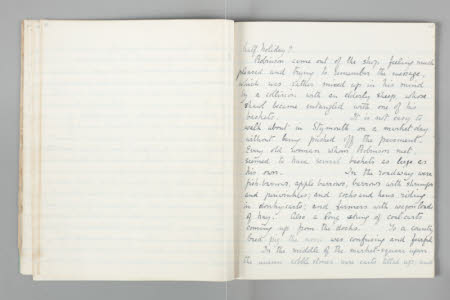 half holiday?
Robinson came out of the shop feeling much
pleased and trying to remember the message,
which was rather mixed up in his mind
by a collision with an elderly sheep whose
shawl became entangled with one of his
baskets. It is not easy to
walk about in Stymouth on a market day
without being pushed off the pavement.
Every old woman whom Robinson met,
seemed to have several baskets as large as
his own. In the roadway were
fish barrows, apple barrows, barrows with
and periwinkles; and cocks and hens riding
in donkey carts; and farmers with waggon loads
of hay. Also a long string of coal carts
coming up from the docks. To a country
bred pig the noise was confusing and fearful
In the middle of the market-square upon
the uneven cobble stones were carts tilted up; and